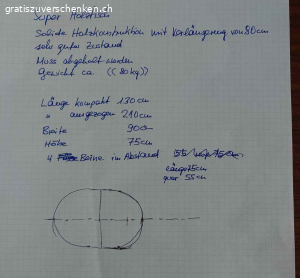 gratiszuverschenken.ch
Super Holztisch
Solide Holzkonstruktion mit Verlängerung von 80cm
sehr guter Zustand
Muss abgeholt werden
Gewicht ca. ((80kg))
Länge kompakt 130cm
" ausgezogen 210cm
Breite 90cm
Höhe 75cm
4 Beine im Abstand
längs 75cm
quer 55cm